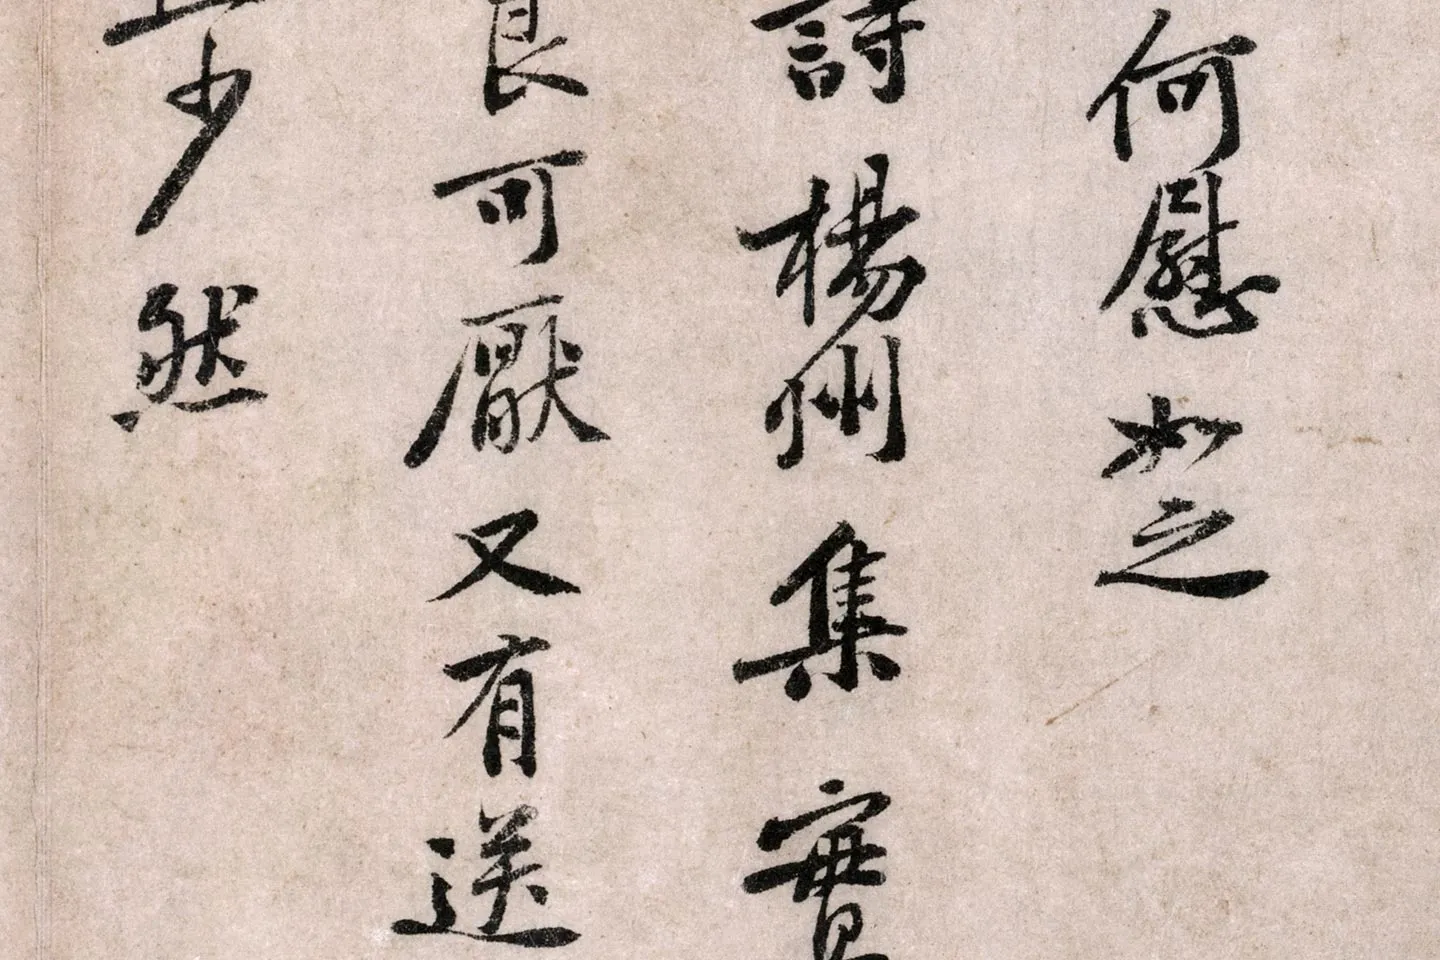 何慰如之
詩楊州集實
良可厭又有送
少然